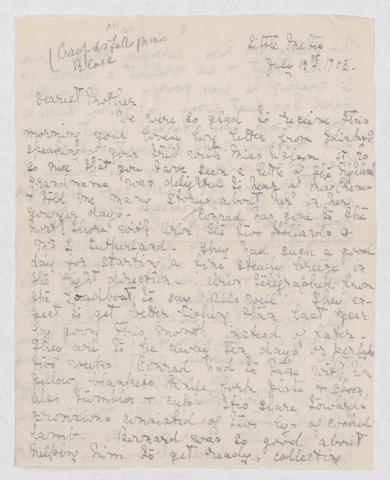 Crawfords Falls picnic
Blake
Little Metis
July 19th 1902.
Dearest Mother.
We were so glad to receive this
morning your brief long letter from Edinburgh
speaking of your trip with Miss Wilson. It is
so nice that you have seen a little of the
Grandmama was delighted to hear of Miss
& told me many stories about her in her
younger days. Conrad has gone to the
north shore with Eric, the two Howards &
Mr L Sutherland. They had such a good
day for starting a fine steady breeze in
the right direction. Eric telegraphed from
the to say "All's well". They ex-
pect to get better fishing than last year
by going this month instead of later.
They are to be away ten days or perhaps
two weeks. Conrad had to take with him
pillow, blankets, knife fork plate & spoon,
also tumbler & cup. His share towards
provisions consisted of two legs of cooked
lamb. Bernard was so good about
helping him to get ready, collecting